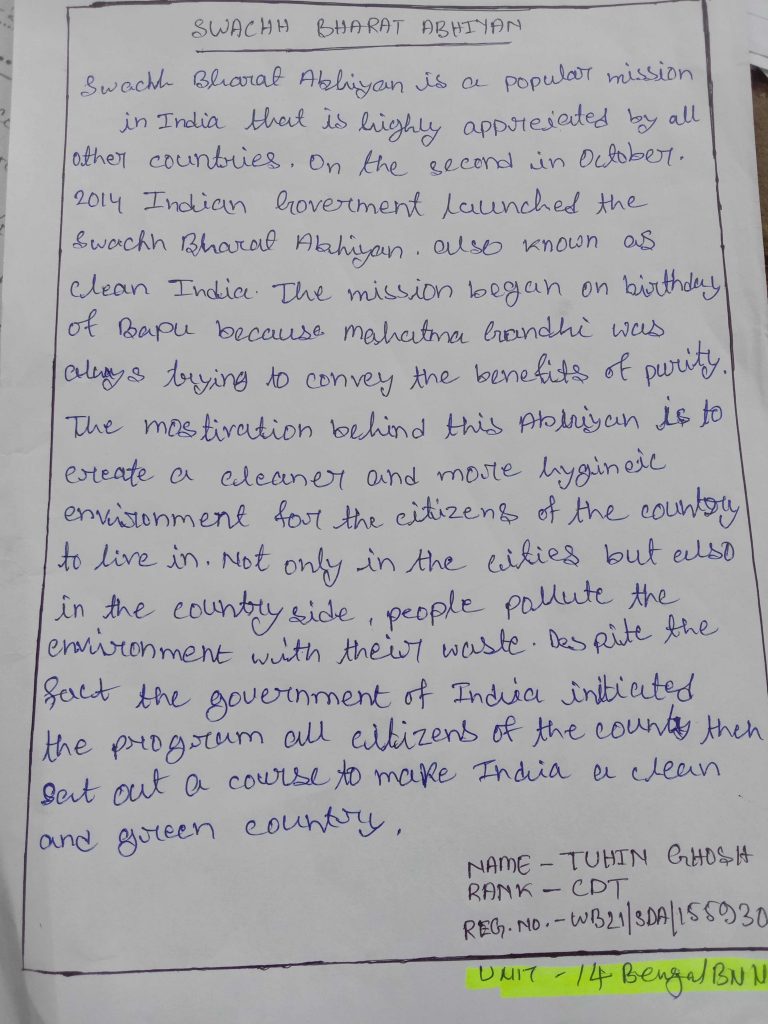 SWACHH BHARAT ABHIYAN
Swachh Bharat Abhiyan is a popular mission
in India that is highly appreseiated by all
other countries. On the second in October.
2014 Indian Goverment launched the
Swachh Bharat Abahiyan. also known as
clean India. The mission began on birthday
of Bapu because mahatma Gandhi was
always trying to convey the benefits of purity.
The mostivation behind this Abhiyan is to
create a cleaner and more hygineic
environment for the citizens of the country
to live in. Not only in the cities but also
in the country side, people pollute the
environment with their waste. Despite the
fact the government of India initiated
the program all citizens of the county then
sat out a course to make India a clean
and green country.
NAME - TUHIN GHOSH
RANK - CDT
REG. NO. - WB21/SDA/155930
UNIT - 14 Bengal BN N